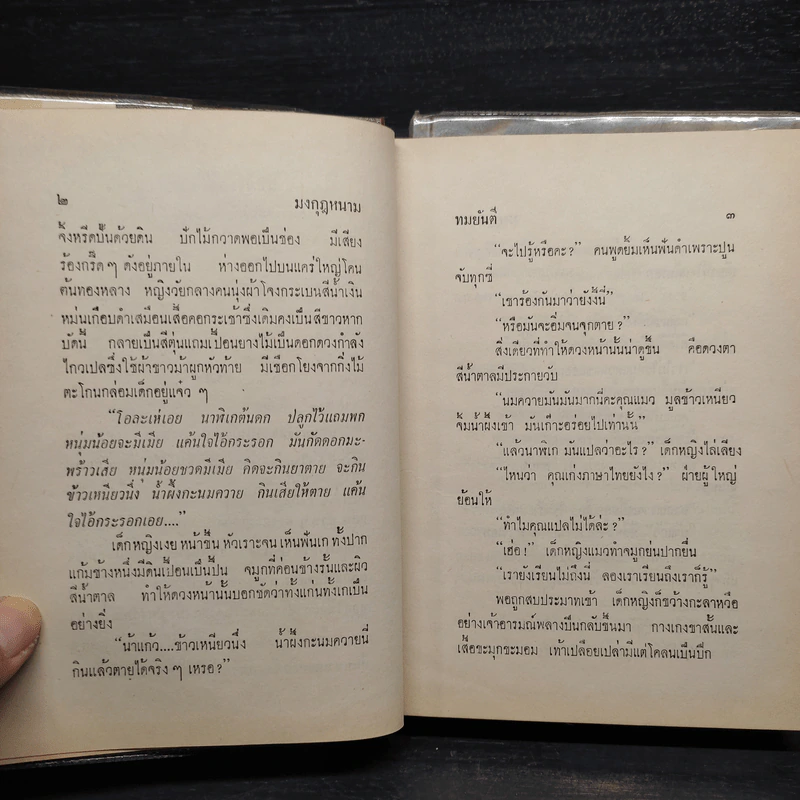 ๒ มงกุฎหนาม
จิ้งหรีดปั้นด้วยดิน ปักไม้กวาดพอเป็นช่อง มีเสียง
ร้องกรี๊ด ๆ ดังอยู่ภายใน ห่างออกไปบนแคร่ใหญ่โคน
ต้นทองหลาง หญิงวัยกลางคนนุ่งผ้าโจงกระเบนสีน้ำเงิน
หม่นเกือบดำเสมือนเสื้อคอกระเช้าซึ่งเดิมคงเป็นสีขาวหาก
บัดนี้ กลายเป็นสีตุ่นแถมเปื้อนยางไม้เป็นดอกดวงกำลัง
ไกวเปลซึ่งใช้ผ้าขาวม้าผูกหัวท้าย มีเชือกโยงจากกิ่งไม้
ตะโกนกล่อมเด็กอยู่แจ๋ว ๆ
“โอละเห่เอย นาพิเกต้นดก ปลูกไว้แถมพก
หนุ่มน้อยจะมีเมีย แค้นใจไอ้กระรอก มันกัดดอกมะ-
พร้าวเสีย หนุ่มน้อยชวดมีเมีย คิดจะกินยาตาย จะกิน
ข้าวเหนียวนึ่ง น้ำผึ้งกะนมควาย กินเสียให้ตาย แค้น
ใจไอ้กระรอกเอย....”
เด็กหญิงเงย หน้าขึ้น หัวเราะจน เห็นฟันเก ทั้งปาก
แก้มข้างหนึ่งมีดินเปื้อนเป็นปื้น จมูกที่ค่อนข้างรั้นและผิว
สีน้ำตาล ทำให้ดวงหน้านั้นบอกชัดว่าทั้งแก่นทั้งเกเป็น
อย่างยิ่ง
“น้าแก้ว....ข้าวเหนียวนึ่ง น้ำผึ้งกะนมควายนี่
กินแล้วตายได้จริง ๆ เหรอ?”
ทมยันตี ๓
“จะไปรู้หรือคะ?” คนพูดยิ้มเห็นฟันดำเพราะปูน
จับทุกซี่
“เขาร้องกันมาว่ายังงี้นี่”
“หรือมันจะอิ่มจนจุกตาย?”
สิ่งเดียวที่ทำให้ดวงหน้านั้นน่าดูขึ้น คือดวงตา
สีน้ำตาลมีประกายวับ
“นมควายมันมันมากนี่คะคุณแมว มูลข้าวเหนียว
จิ้มน้ำผึ้งเข้า มันเก๊าะอร่อยไปเท่านั้น”
“แล้วนาพิเก มันแปลว่าอะไร?” เด็กหญิงไล่เลียง
“ไหนว่า คุณเก่งภาษาไทยยังไง?” ฝ่ายผู้ใหญ่
ย้อนให้
“ทำไมคุณแปลไม่ได้ล่ะ?”
“เฮ่อ!” เด็กหญิงแมวทำจมูกย่นปากยื่น
“เรายังเรียนไม่ถึงนี่ ลองเราเรียนถึงเราก็รู้”
พอถูกสบประมาทเข้า เด็กหญิงก็ขว้างกะลาหวือ
อย่างเจ้าอารมณ์พลางปีนกลับขึ้นมา กางเกงขาสั้นและ
เสื้อขะมุกขะมอม เท้าเปลือยเปล่ามีแต่โคลนเป็นปึก